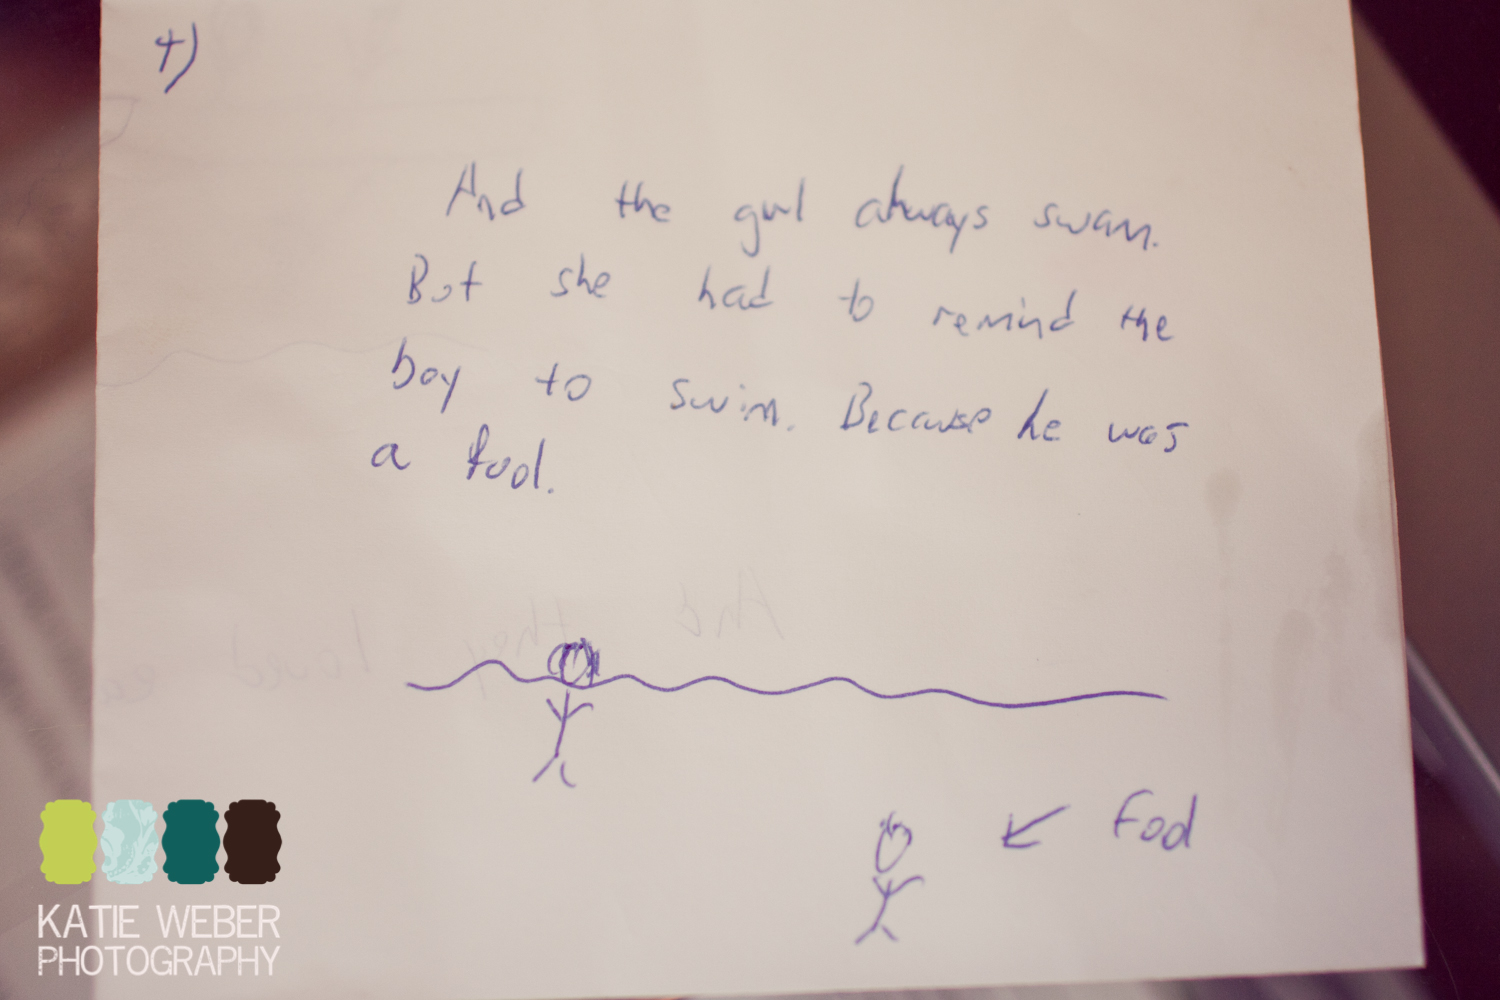 4)
And the girl always swam.
But she had to remind the
boy to swim. Because he was
a fool.
And they loved ea
Fool
KATIE WEBER
PHOTOGRAPHY